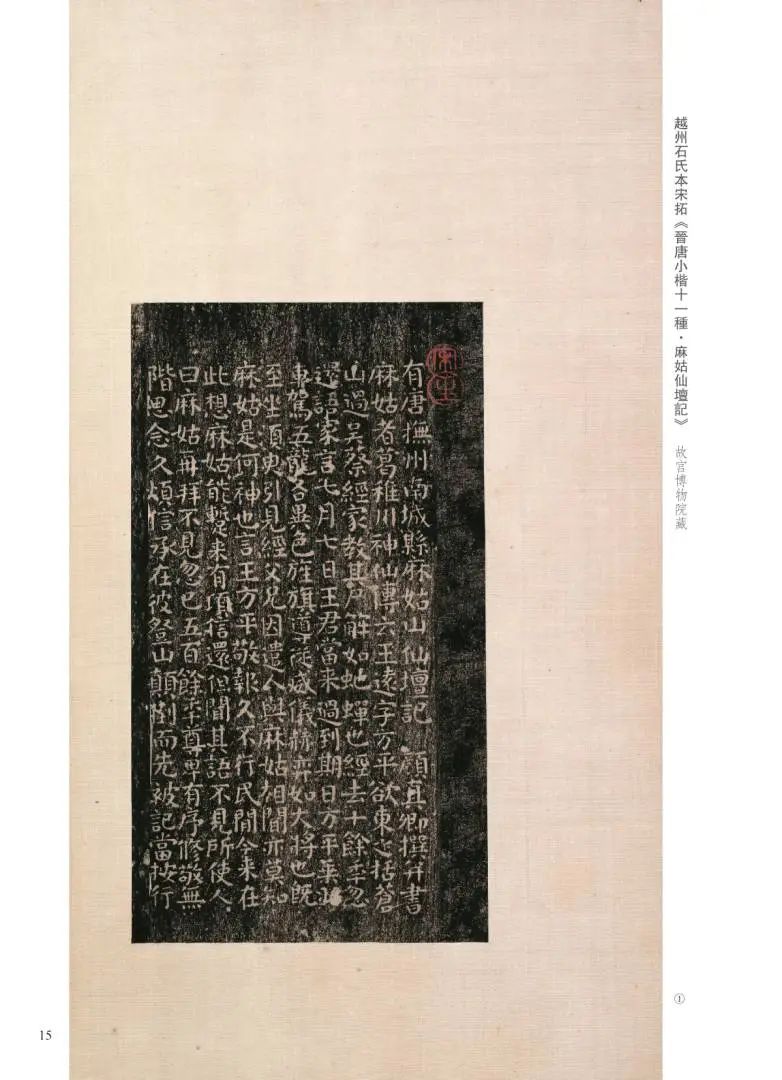 越州石氏本宋拓《晉唐小楷十一種·麻姑仙壇記》 故宮博物院藏
①
有唐撫州南城縣麻姑山仙壇記 顔真卿撰并書
麻姑者葛稚川神仙傳云王遠字方平欲東之括蒼
山過吳蔡經家教其尸解如虵蟬也經去十餘年忽
還語家言七月七日王君當来過到期日方平乗
車駕五龍各異色旌旗導從威儀赫弈如大將也旣
至坐須臾引見經父兄因遣人與麻姑相聞亦莫知
麻姑是何神也言王方平敬報久不行民間今来在
此想麻姑能蹔来有頃信還但聞其語不見所使人
曰麻姑再拜不見忽已五百餘年尊卑有序修敬無
階思念久煩信承在彼登山顛倒而先被記當按行
15